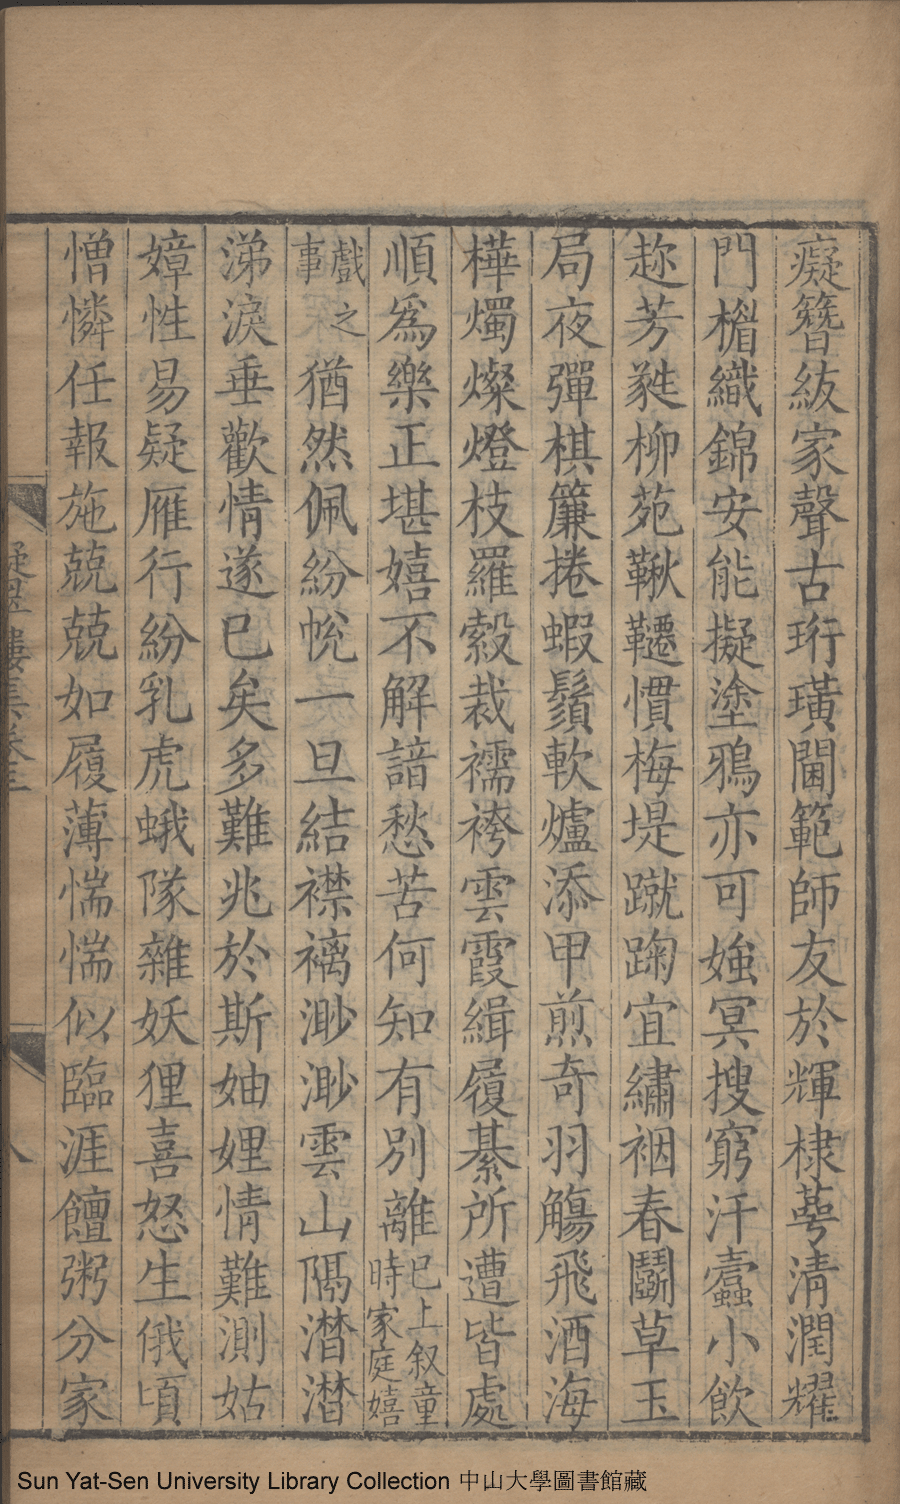 癡簪紱家聲古珩璜閫範師友於輝棣萼清潤耀
門楣織錦安能擬塗鴉亦可媸冥搜窮汗蠧小飲
趂芳蕤柳苑鞦韆慣梅堤蹴踘宜繡裀春鬬草玉
局夜彈棋簾捲蝦鬚軟爐添甲煎奇羽觴飛酒海
樺燭燦燈枝羅縠裁襦袴雲霞緝履綦所遭皆處
順爲樂正堪嬉不解諳愁苦何知有別離已上叙童時家庭嬉
戲之事猶然佩紛帨一旦結襟褵渺渺雲山隔潸潸
涕淚垂歡情遂已矣多難兆於斯妯娌情難測姑
嫜性易疑雁行紛乳虎蛾隊雜妖狸喜怒生俄頃
憎憐任報施兢兢如履薄惴惴似臨涯饘粥分家
疑翠樓集卷三
八
Sun Yat-Sen University Library Collection 中山大學圖書館藏